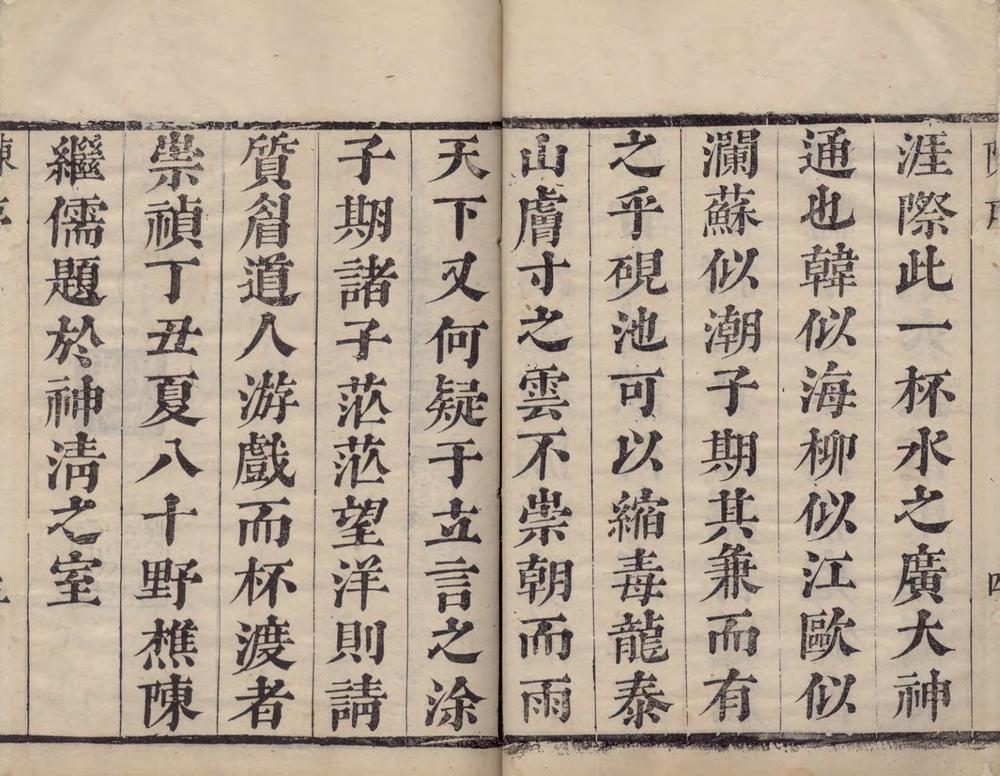 涯際此一杯水之廣大神
通也韓似海柳似江歐似
瀾蘇似潮子期其兼而有
之乎硯池可以縮毒龍泰
山膚寸之雲不崇朝而雨
天下又何疑于立言之涂
子期諸子茫茫望洋則請
質眉道人游戲而杯渡者
崇禎丁丑夏八十野樵陳
繼儒題於神清之室